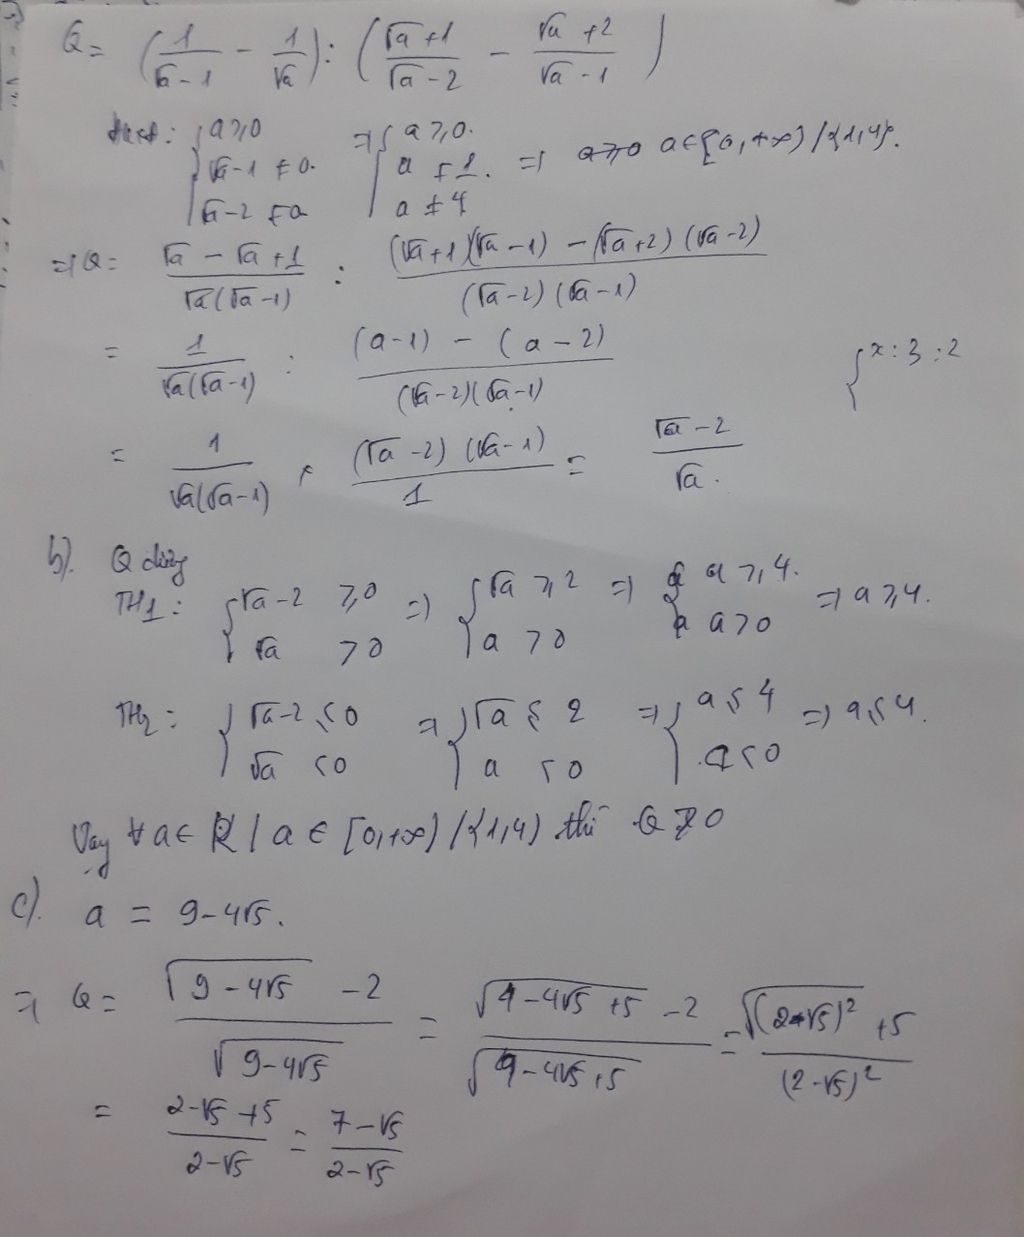 Q = (1/(√a - 1) - 1/√a) : ((√a + 1)/(√a - 2) - (√a + 2)/(√a - 1))
{a ≥ 0; √a - 1 ≠ 0; √a - 2 ≠ 0 ⇒ {a ≥ 0; a ≠ 1; a ≠ 4 ⇒ a ∈ [0, +∞) / {1, 4}.
⇒ Q = (√a - √a + 1)/(√a(√a - 1)) : ((√a + 1)(√a - 1) - (√a + 2)(√a - 2))/((√a - 2)(√a - 1))
= 1/(√a(√a - 1)) : ((a - 1) - (a - 2))/((√a - 2)(√a - 1))
{x : 3 : 2
= 1/(√a(√a - 1)) . ((√a - 2)(√a - 1))/1 = (√a - 2)/√a.
b). Q dương
TH1: {√a - 2 ≥ 0; √a > 0 ⇒ {√a ≥ 2; a > 0 ⇒ {a ≥ 4; a > 0 ⇒ a ≥ 4.
TH2: {√a - 2 ≤ 0; √a < 0 ⇒ {√a ≤ 2; a < 0 ⇒ {a ≤ 4; a < 0 ⇒ a ≤ 4.
Vậy ∀ a ∈ R / a ∈ [0, +∞) / {1, 4) thì Q > 0
c). a = 9 - 4√5.
⇒ Q = (√(9 - 4√5) - 2)/√(9 - 4√5) = (√(4 - 4√5 + 5) - 2)/√(4 - 4√5 + 5) = (√(2 - √5)² + 5)/(2 - √5)²
= (2 - √5 + 5)/(2 - √5) = (7 - √5)/(2 - √5)